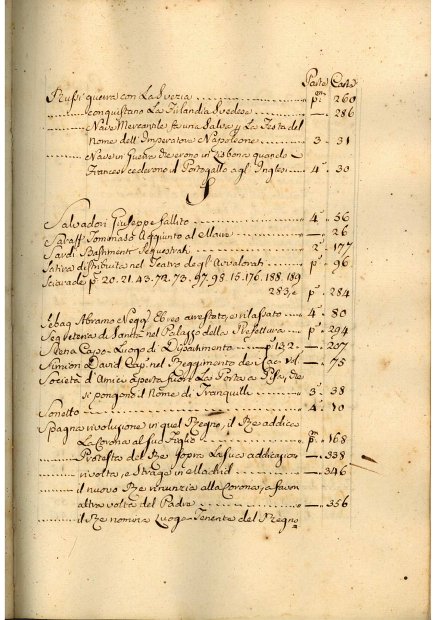 Parte Carte
Russi guerra con La Svezia ........ pma 260
.......... conquistano La Finlandia Svedese ........ — .. 286
.......... Nave Mercantile fa una Salva p La Festa del
.......... nome dell' Imperatore Napoleone ........ 3 .. 31
.......... Nave in Guerra che erono in Lisbona quando i
.......... Francesi cederono il Portogallo agl' Inglesi .... 4a .. 30
S
Salvadori Giuseppe fallito ........ 4a .. 56
Saraff Tommaso Aggiunto al Maire ........ — .. 26
Sardi Bastimenti Sequestrati ........ 2a .. 177
Satira distribuita nel Teatro degl' Avvalorati ........ pa .. 96
Sciarade pa 20. 21. 43. 72. 73. 97. 98. 15. 176. 188. 189
283, e .. pa .. 284
Sebag Abramo Neg Ebreo arrestato, e rilassato .... 4a .. 80
Segreteria di Sanità nel Palazzo della Prefettura .... pa .. 294
Siena Capo-Luogo di Dipartimento .... pa 132 .. — .. 207
Simion David Cap. nel Reggimento de Cac. Vel .... — .. 75
Società d'Amici aperta fuori La Porta a Pisa, che
.......... si pongono il Nome di Tranquilli ........ 3a .. 38
Sonetto ........ 4a .. 10
Spagna rivoluzione in quel Regno, il Re addica
.......... La Corona al suo Figlio ........ pma .. 168
.......... Protesta del Re sopra La sua addicazion — .. 338
.......... rivolta, e Strage in Madrid ........ — .. 346
.......... il nuovo Re rinunzia alla Corona, a favor
.......... altra volta del Padre ........ — .. 356
.......... il Re nomina Luogo-Tenente del Regno